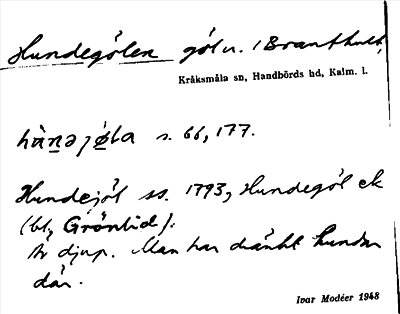 Hundegölen göl n. i Branthult,
Kråksmåla sn, Handbörds hd, Kalm. l.
s. 66, 177.
Hundejöl ss. 1793, Hundegöl ek
(bl, Gröntid).
Är djup. Man har dränkt hundar
där.
Ivar Modéer 1948